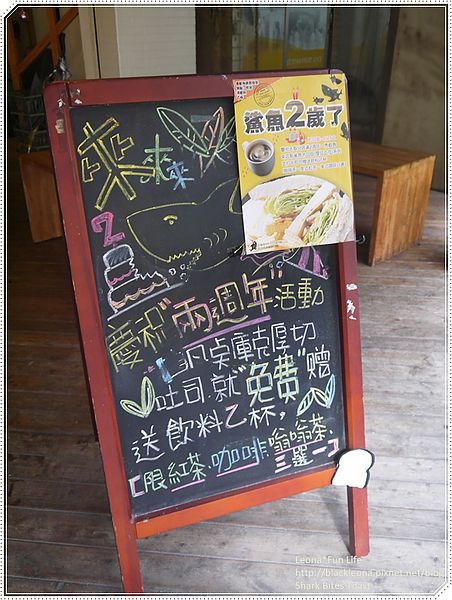 來來來
鯊魚2歲了
2
慶祝"兩週年"活動
凡點庫克厚切
吐司.就"免費"贈
送飲料乙杯,
【限紅茶.咖啡.嗡嗡茶.
三選一】
Leona*Fun Life~
http://blackleona.pixnet.net/blog
Shark Bites Toast